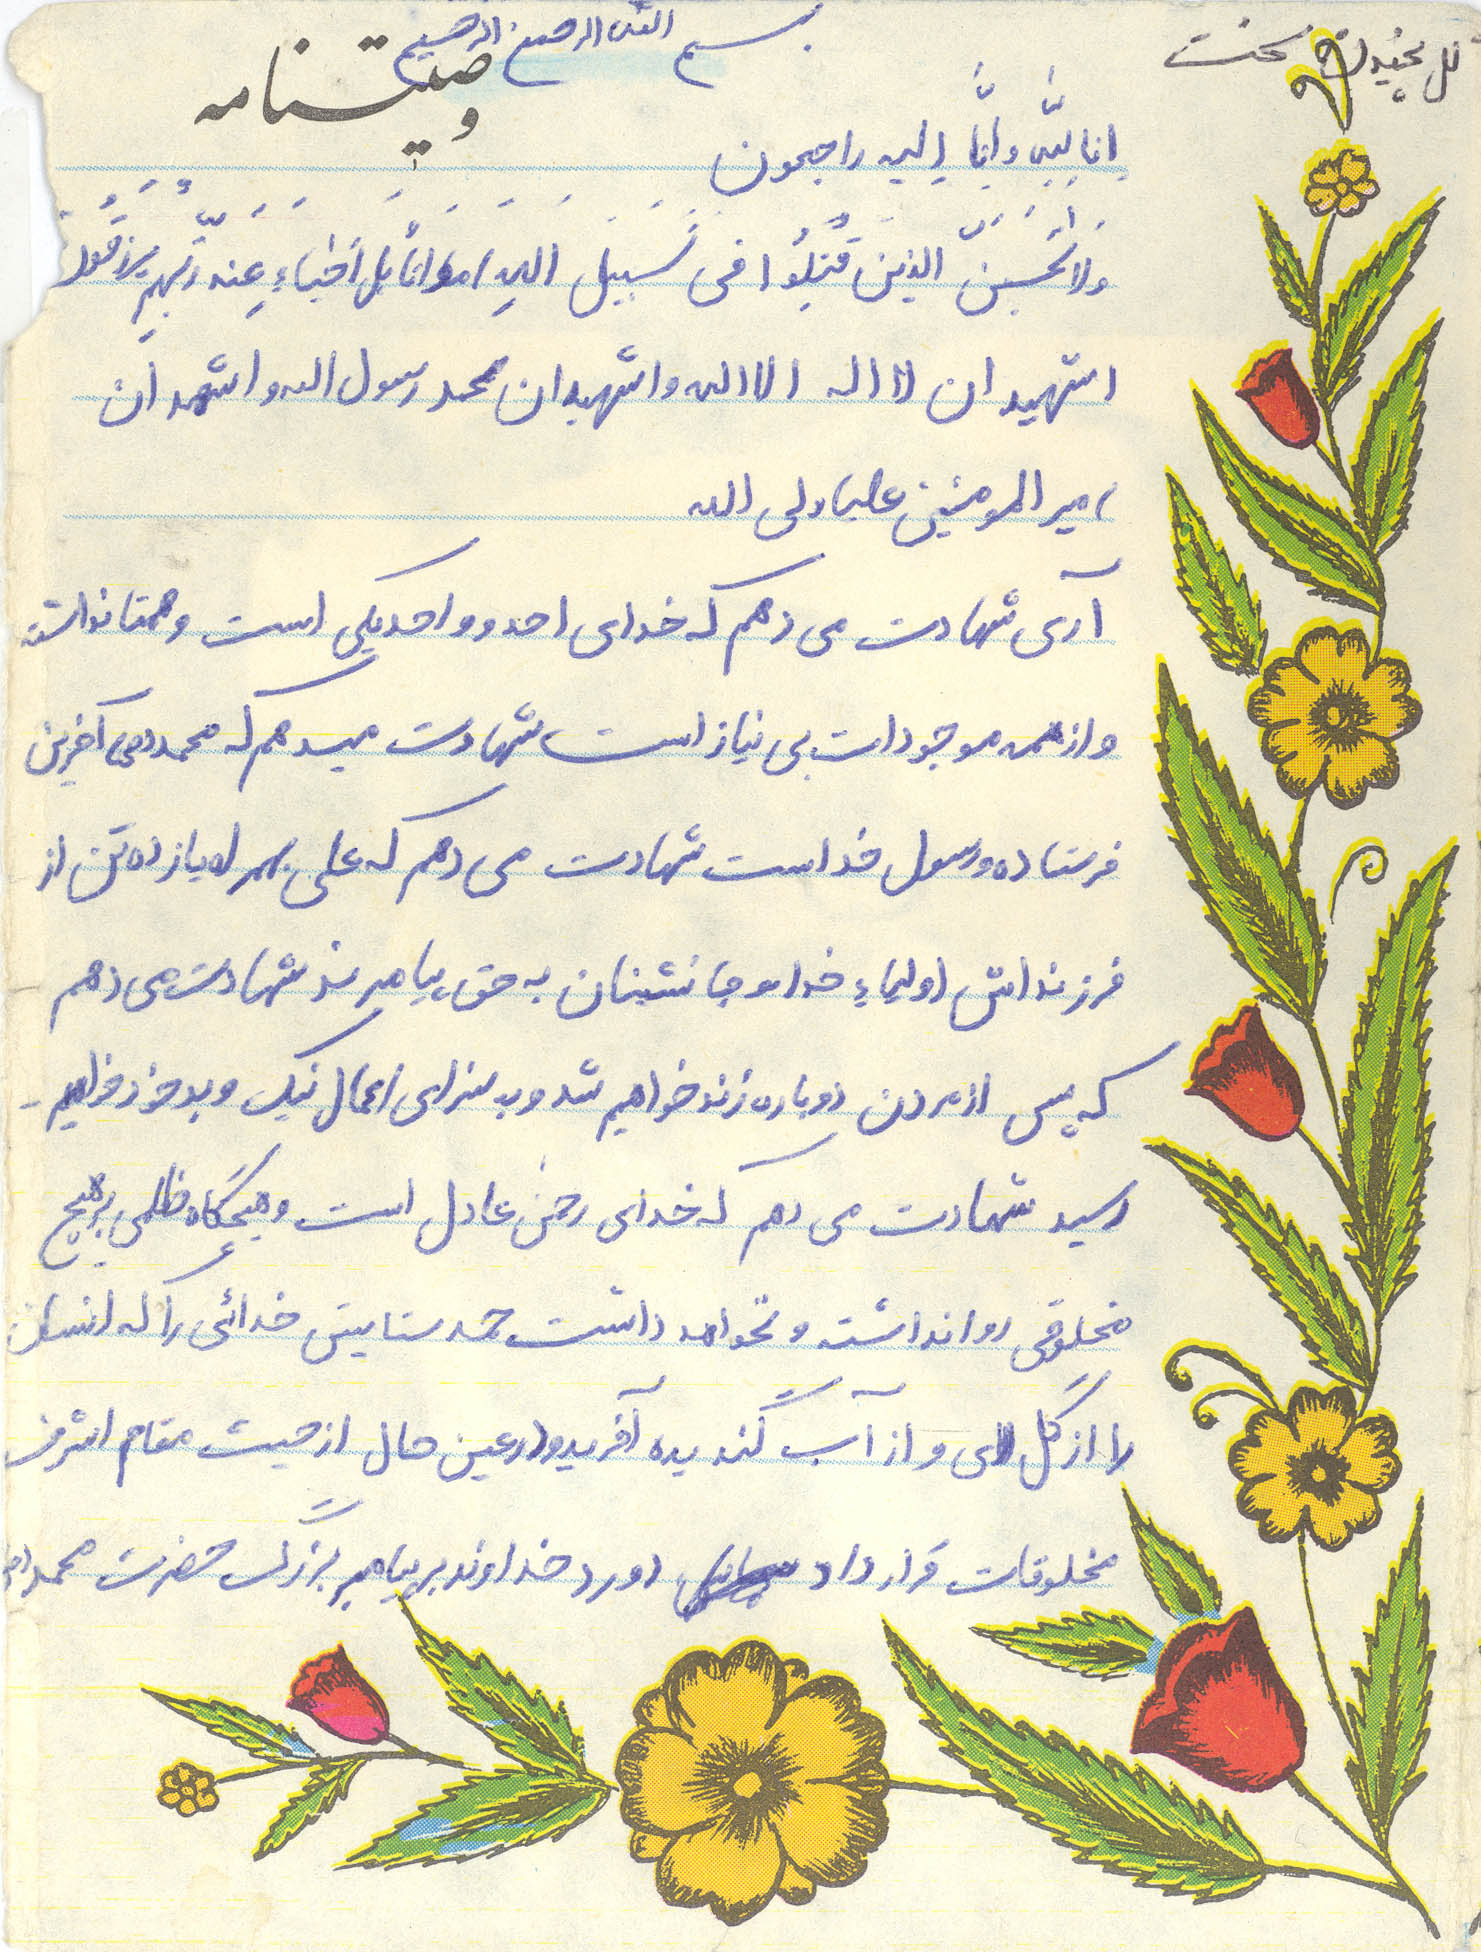 بسم الله الرحمن الرحیم
وصیتنامه
انا لِلّهِ وانّا اِلیه راجعون
ولا تَحْسَبَنَّ الذینَ قُتِلُوا فی سَبیل اللهِ امواتاً بَل اَحْیاءٍ عِنْدَ رَبّهِم یُرْزَقُون
اشهد ان لا اله الا الله و اشهد ان محمد رسول الله و اشهد ان
امیر المومنین علیا ولی الله
آری شهادت می دهم که خدای احد و واحد یکی است و همتا نداشته
و از همه موجودات بی نیاز است شهادت میدهم که محمد (ص) آخرین
فرستاده و رسول خداست شهادت می دهم که علی بهمراه یازده تن از
فرزندانش اولیاءِ خدا و جانشینان به حق پیامبرند شهادت می دهم
که پس از مردن دوباره زنده خواهیم شد و به سزای اعمال نیک و بد خود خواهیم -
رسید شهادت می دهم که خدای رحمن عادل است و هیچگاه ظلمی بر هیچ
مخلوقی روا نداشته و نخواهد داشت حمد ستایش خدائی را که انسان
را از گل و از آب گندیده آفرید و در عین حال از حیث مقام اشرف
مخلوقات قرار داد درود خداوند بر پیامبر بزرگ حضرت محمد (ص)